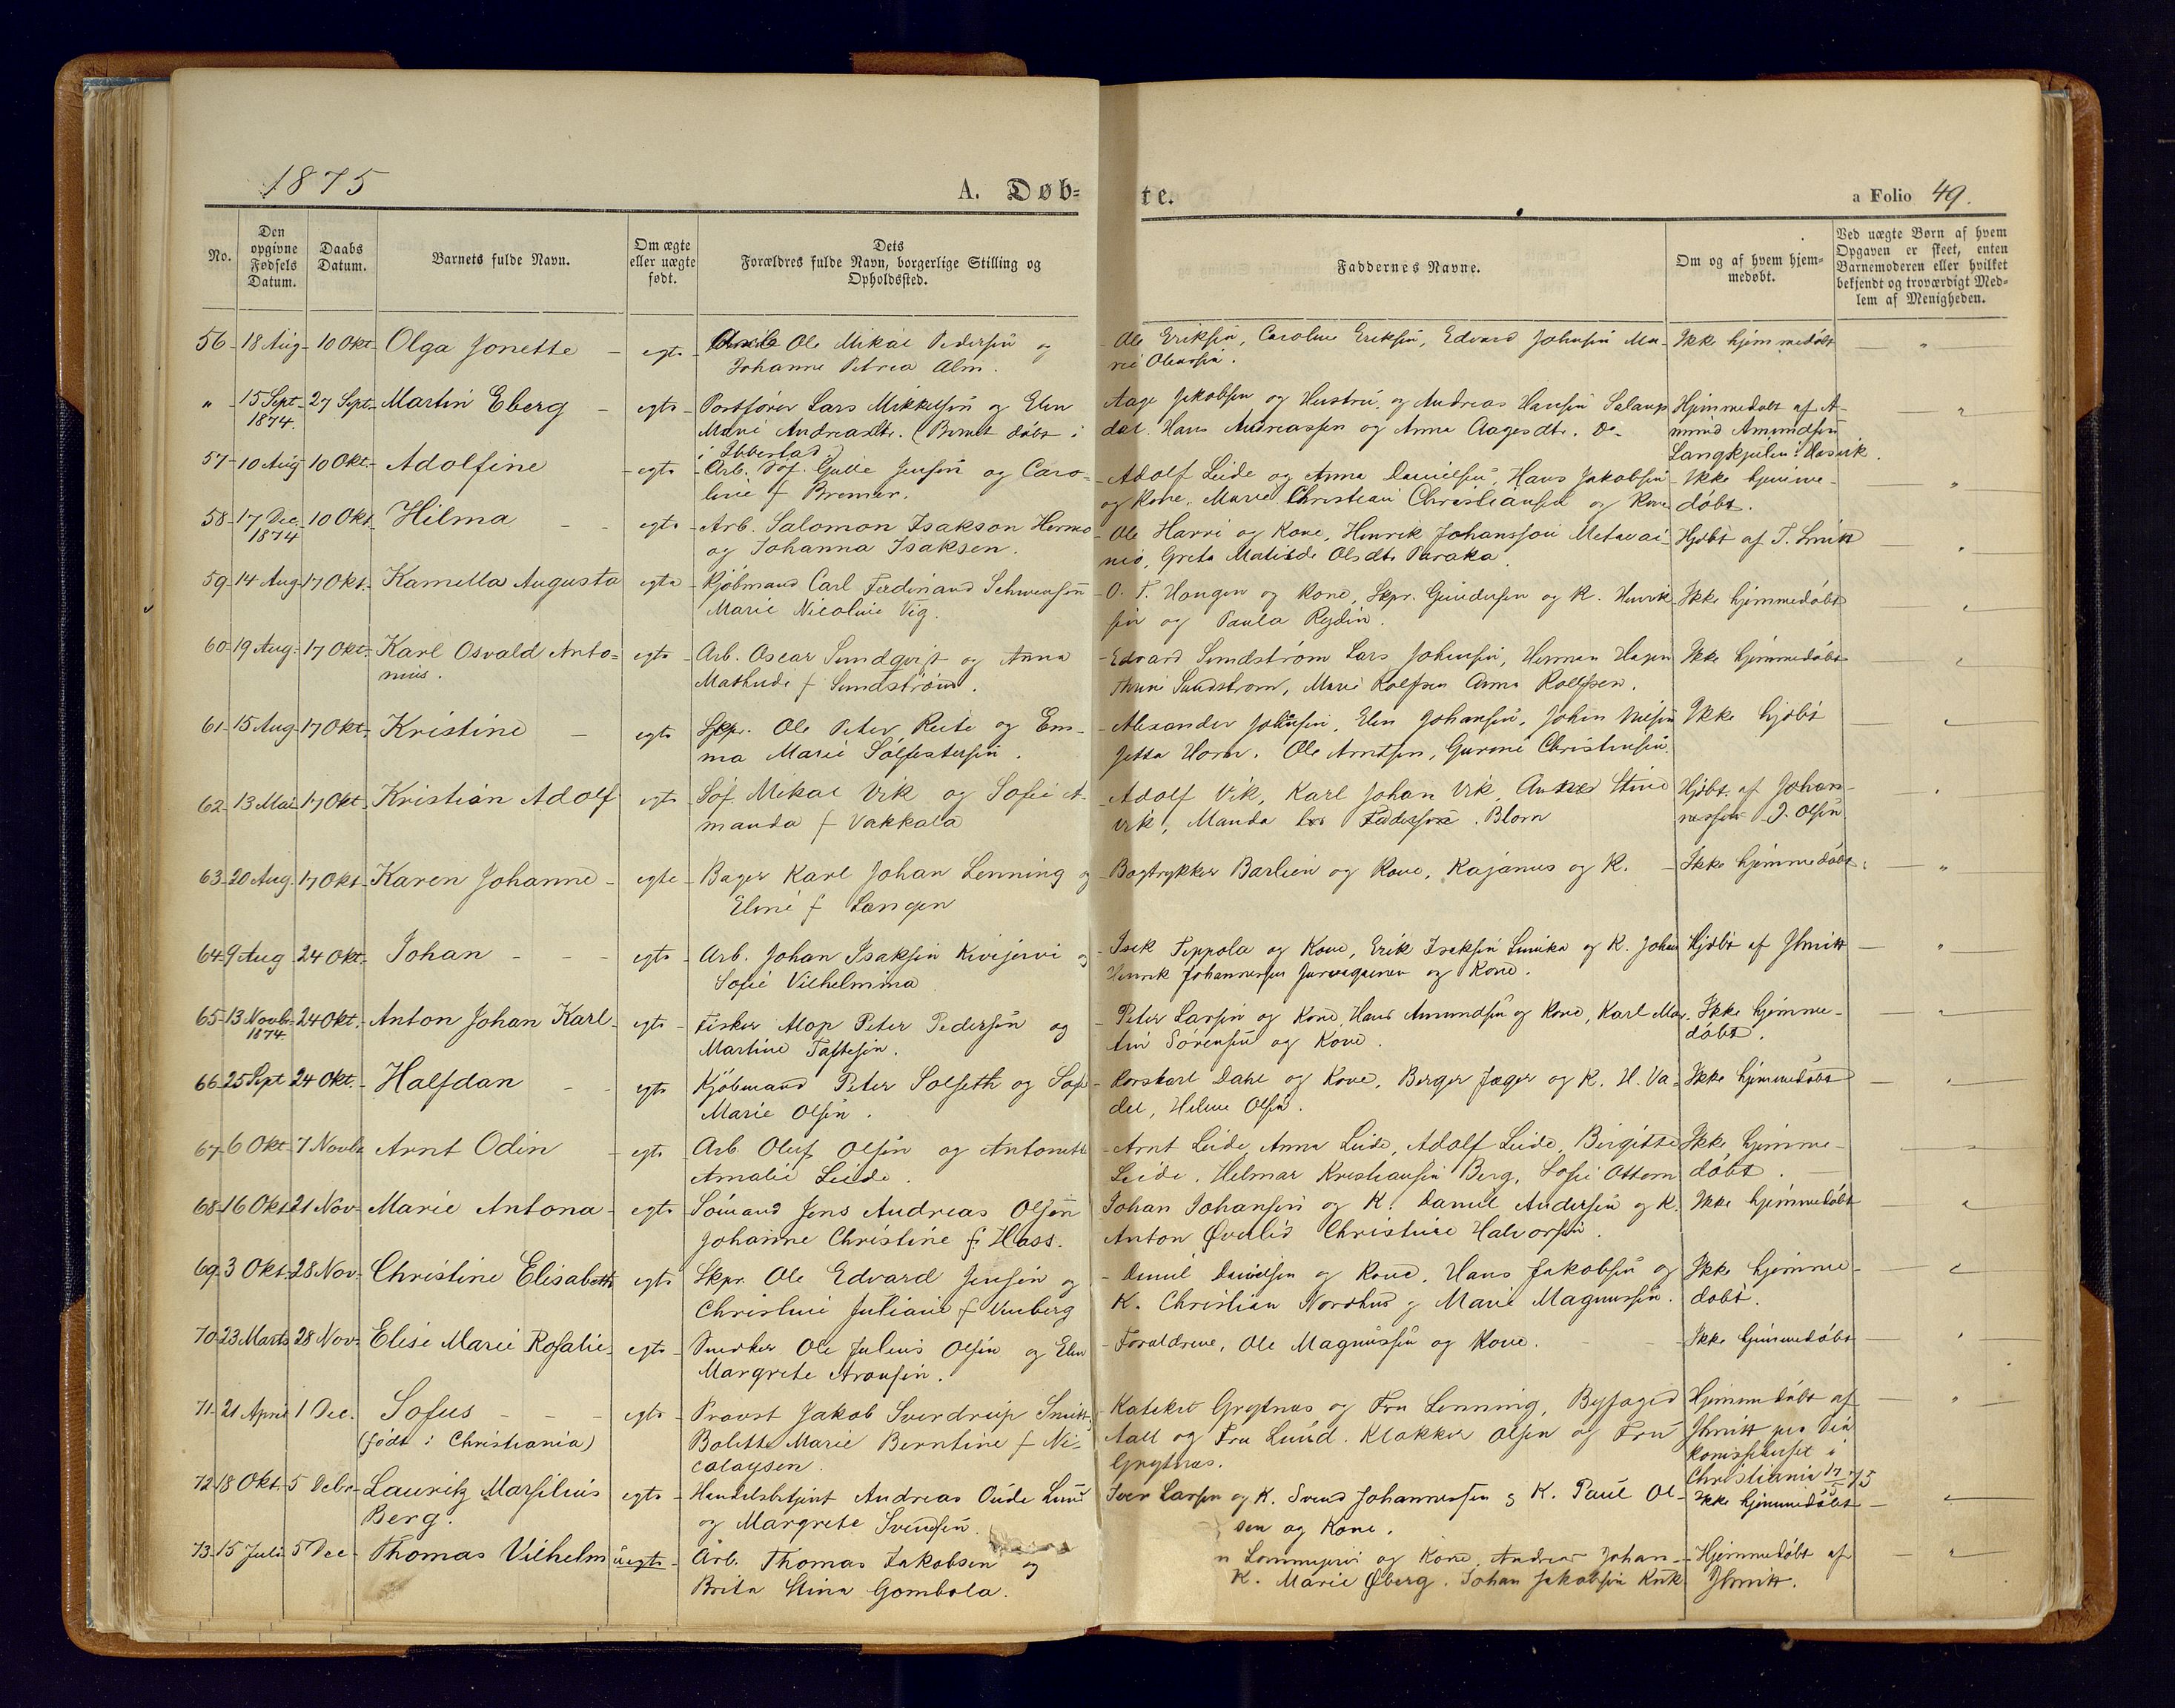 1875
A. Døb=
te.
a Folio 49.
No.
Den opgivne Fødsels Datum.
Daabs Datum.
Barnets fulde Navn.
Om ægte eller uægte født.
Dets Forældres fulde Navn, borgerlige Stilling og Opholdssted.
Faddernes Navne.
Om og af hvem hjem-medøbt.
Ved uægte Børn af hvem Opgaven er skeet, enten Barnemoderen eller hvilket bekjendt og troværdigt Med-lem af Menigheden.
56 - 18 Aug - 10 Okt - Olga Jonette - egte - Ole Mikal Pedersen og - Ole Eriksen, Caroline Eriksen, Edvard Johnsen Ma- Ikke hjemmedöbt - "
Johanne Petrea Alm. rie Olaussen.
" - 15 Sept - 27 Sept - Martin Eberg - egte - Portfører Lars Mikkelsen og Elen Aage Jakobsen og Hustru, og Andreas Hansen Salang Hjemmedøbt af A- "
1874. Marie Andreasdtr. (Barnet döbt i dal. Hans Andreassen og Anna Aagesdtr. Do - mund Amundsen
i Ibbestad.) Langkjeilen i Hasvik.
57 - 10 Aug - 10 Okt. - Adolfine - egte - Arb. Gulle Jensen og Caro- - Adolf Leide og Anna Danielsen, Hans Jakobsen - Ikke hjemme- "
line f Bremer. og Kone, Marie Christian Christiansen og Kone döbt.
58 - 17 Dec - 10 Okt - Hilma - egte - Arb. Salomon Isakson Hermo - Ole Harri og Kone, Henrik Johansson Metavai- Hjdöbt af J. Smitt "
1874 og Johanna Isaksen. nio, Greta Matilde Olsdtr Paraka.
59 - 14 Aug - 17 Okt. - Kamilla Augusta egte - Kjöbmand Carl Ferdinand Schwensen - O. T. Haugen og Kone, Skpr. Gundersen og K. Henrik- Ikke hjemmedöbt "
Marie Nicoline Vig. sen og Paula Rydin.
60 - 19 Aug. - 17 Okt. - Karl Osvald Anto= egte - Arb. Oscar Sundqvist og Anna - Edvard Sundström Lars Johnsen, Herman Hagen Ikke hjemmedöbt "
nius. Mathilde f Sundström. Thrine Sundstrom, Marie Rolfsen Anna Rolfsen.
61 - 15 Aug - 17 Okt. - Kristine - egte - Skpr. Ole Peter Reite og Em- - Alexander Johnsen, Elen Johansen, Johan Nilsen Ikke hjdöbt "
ma Marie Sölfestersen. Jetta Horn. Ole Arntsen, Gurine Christensen.
62 - 13 Mai - 17 Okt - Kristian Adolf egte - Söf Mikal Vik og Sofie A- - Adolf Vik, Karl Johan Vik, Anne Stine Hjdbt. af Johan-
manda f Vakkala vik, Manda Pedersen. Blom nessen J. Olsen
63 - 20 Aug. - 17 Okt - Karen Johanne - egte - Bager Karl Johan Lenning og - Bogtrykker Barlien og Kone, Kajanus og K. - Ikke hjemmedöbt. "
Eline f Langen
64 - 9 Aug - 24 Okt. - Johan - - - egte - Arb. Johan Isaksen Kivijervi og - Isak Teppola og Kone, Erik Isaksen Linika og K. Johan Hjdöbt af JSmitt - "
Sofie Vilhelmina Henrik Johannessen og Kone.
65 - 13 Novbr - 24 Okt. - Anton Johan Karl - egte - Fisker Alop Peter Pedersen og - Peter Larsen og Kone, Hans Amundsen og Kone, Karl Mar- Ikke hjemme- "
1874. Martine Taftesen. tin Sörensen og Kone. döbt.
66 - 25 Sept 24 Okt. - Halfdan - - egte Kjöbmand Peter Solseth og Sofie - Korskarl Dahl og Kone, Berger Jæger og K. H. Va- Ikke hjemmedöbt "
Marie Olsen. del, Helene Olsen.
67 - 6 Okt - 7 Novbr Arnt Odin - egte - Arb Oluf Olsen og Antonette - Arnt Leide, Anna Leide, Adolf Leide, Birgitte Ikke hjemme-
Amalie Leide. Leide. Helmar Kristiansen Berg, Sofie Ottem döbt.
68 - 16 Okt 21 Nov - Marie Antona - egte - Sömand Jens Andreas Olsen Johan Johansen og K. Daniel Andersen og K. Ikke hjemmedöbt "
Johanne Christine f. Hass. Anton Øverlid Christine Halvorsen.
69 - 3 Okt. 28 Nov - Christine Elisabeth egte - Skpr. Ole Edvard Jensen og - Daniel Danielsen og Kone, Hans Jakobsen og Ikke hjemme- "
Christine Juliane f Vinberg K. Christian Nordhus og Marie Magnussen. döbt.
70 - 23 Marts 28 Nov - Elise Marie Rosalie - egte - Snedker Ole Julius Olsen og Elen - Foraldrene, Ole Magnussen og Kone. - Ikke hjemmedöbt "
Margrete Aronsen.
71 - 21 April 1 Dec. Sofus - - - egte - Provst Jakob Sverdrup Smitt, - Kateket Grytnæs og Fru Lenning, Byfoged Hjemmedöbt af "
(födt i Christiania) Bolette Marie Berntine f Ni- Aall og Fru Lund. Klokker Olsen og Fru JSmitt
colaysen. Grytnæs. Christiania 75
72 - 18 Okt - 5 Debr - Lauritz Marsilius egte - Handelsbetjent Andreas Lund Iver Larsen og K. Svend Johannessen og K. Paul Ol- Ikke hjemmedöbt "
Berg. og Margrete Svendsen. sen og Kone.
73 - 15 Juli 5 Dec - Thomas Vilhelm uegte - Arb. Thomas Jakobsen og og Kone, Andreas Johan- Hjemmedöbt af "
Brita Stina Gombola. K. Marie Øberg. Johan Jakobsen JSmitt.